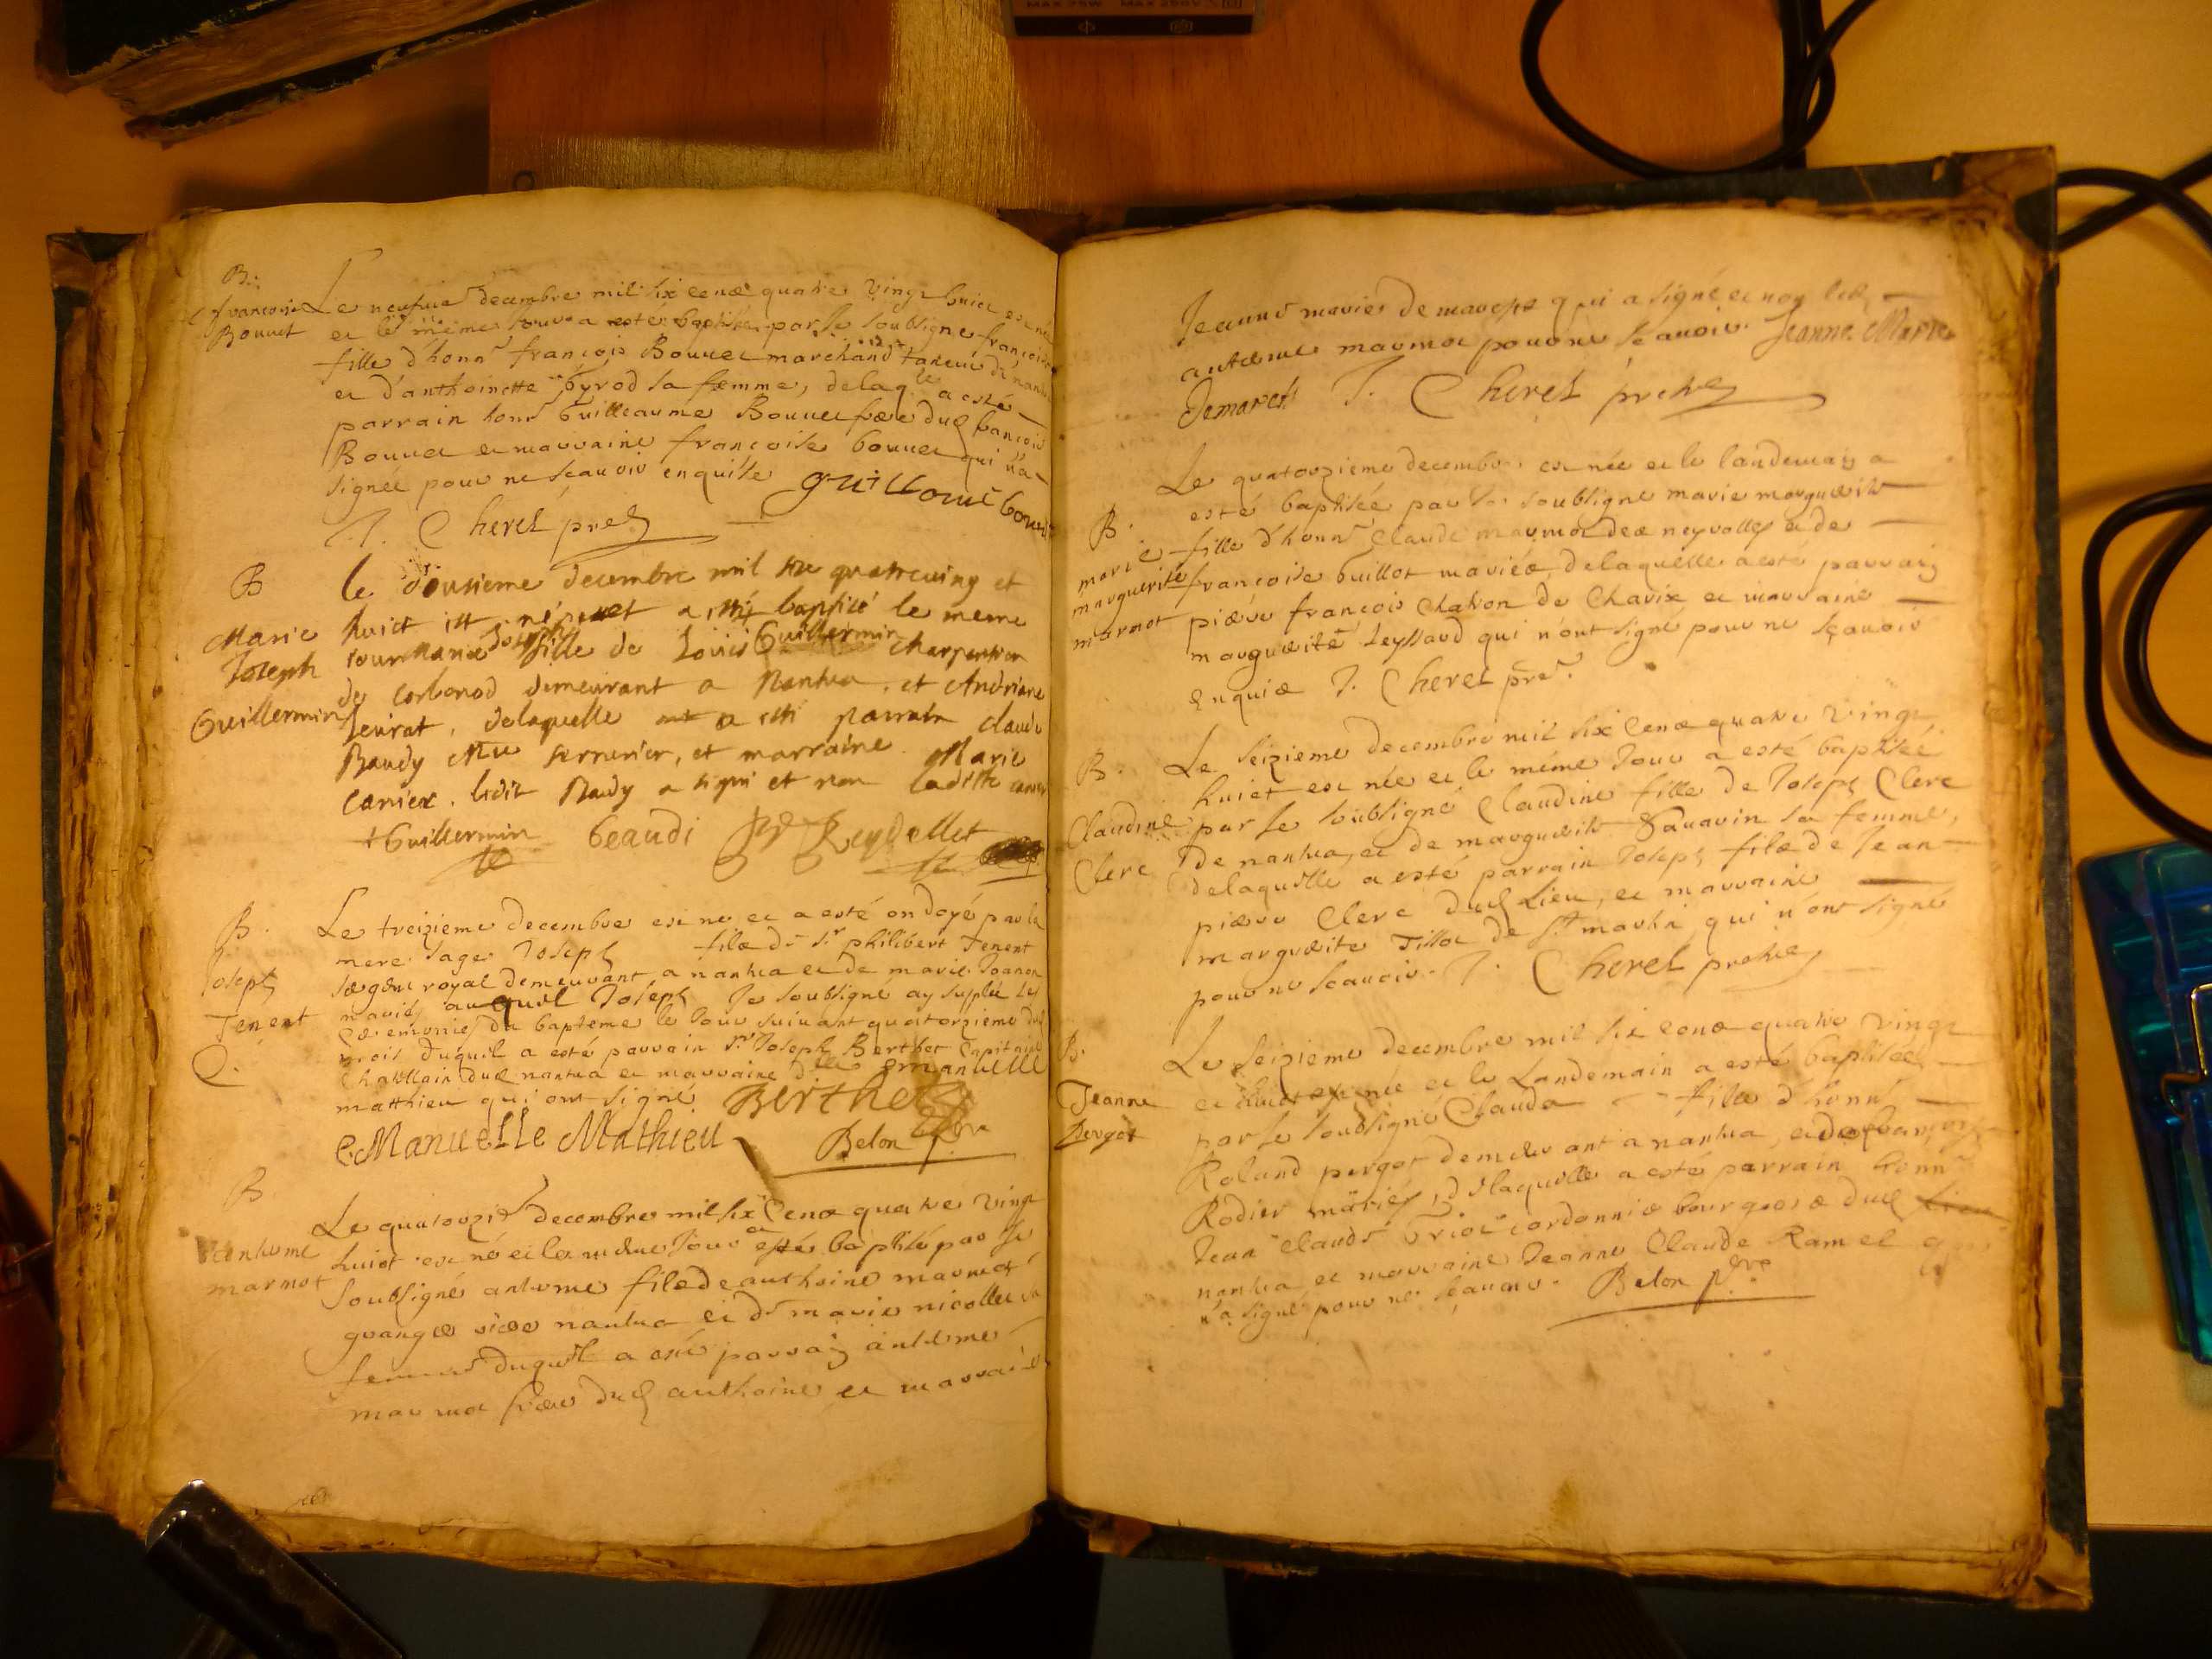 B.
françoise
Bouvet
Le neufvie decembre mil six cens quatre vingt huict est née
et le même jour a esté baptisée par le soubsigné françoise
fille d'honn francois Bouvet marchand taneur de nantua
et d'anthoinette byrod sa femme, delaqle a esté
parrain honn Guilleaume Bouvet frere dud francois
Bouvet et marraine francoise bouvet qui n'a
signée pour ne scavoir enquise Guillome bouvet
J. Cheret pre
B
Marie
Joseph
Guillermin
le dousieme decembre mil six quatreuing et
huict est née et a esté baptisé le meme
jour marie Joseph fille de Louis Guillermin charpentier
de corbonod demeurant a Nantua, et Andriane
Levrat, delaquelle a esté parrain claude
Baudy Me serrurier, et marraine Marie
Carrier. ledit Baudy a signé et non laditte carrier
+ Guillermin beaudi Reydellet
B.
Joseph
Tenent
Le treizieme decembre est né et a esté ondoyé par la
mere sage Joseph fils de Sr philibert Tenent
sergent royal demeurant a nantua et de marie Joanon
mariés auquel Joseph Je soubsigné ay supplée les
ceremonies du bapteme le Jour suivant quatorzieme dud
mois duquil a esté parrain Sr Joseph Berthet Capitaine
Chatellain dud nantua et marraine dlle Emanuelle
matthieu qui ont signé Berthet
EManuelle Mathieu Belon pbre
B
antheme
marmot
Le quatorzie decembre mil six Cens quatre vingt
huict est né et le même Jour a esté baptisé par le
soubsigné antheme fils de anthoine marmot
grangier riere nantua et de marie nicollet sa
femme duquel a esté parrain antheme
marmot frere dud anthoine et marraine
Jeanne marie de marest qui a signé et non led
antheme marmot pour ne scavoir. Jeanne Marie
Demarest J. Cheret prestre
B.
marie
marguerite
marmot
Le quatorzieme decembre est née et le landemain a
esté baptisée par le soubsigné marie marguerite
fille d'honn Claude marmot des neyrolles et de
francoise Guillot mariés, delaquelle a esté parrain
pierre françois Chatron de Charix et marraine
marguerite Leyssard qui n'ont signé pour ne sçavoir
enquis J. Cheret pre.
B.
Claudine
Clerc
Le seizieme decembre mil six Cens quatre vingt
huict est née et le même Jour a esté baptisée
par le soubsigné Claudine fille de Joseph Clerc
de nantua, et de marguerite Savarin sa femme,
delaquelle a esté parrain Joseph fils de Jean
pierre Clerc dud Lieu, et marraine
marguerite Tillot de St martin qui n'ont signé
pour ne scavoir. J. Cheret prestre
B.
Jeanne
Pergot
Le seizieme decembre mil six cens quatre vingt
et huict est née et le Landemain a esté baptisée
par le soubsigné Clauda fille d'honn
Roland pergot demeurant a nantua, et de francoise
Rodier mariés, delaquelle a esté parrain honn
Jean Claude Brioi cordonnie bourgeois dud
nantua et marraine Jeanne Claude Ramel qui
n'a signé pour ne scavoir. Belon pbre